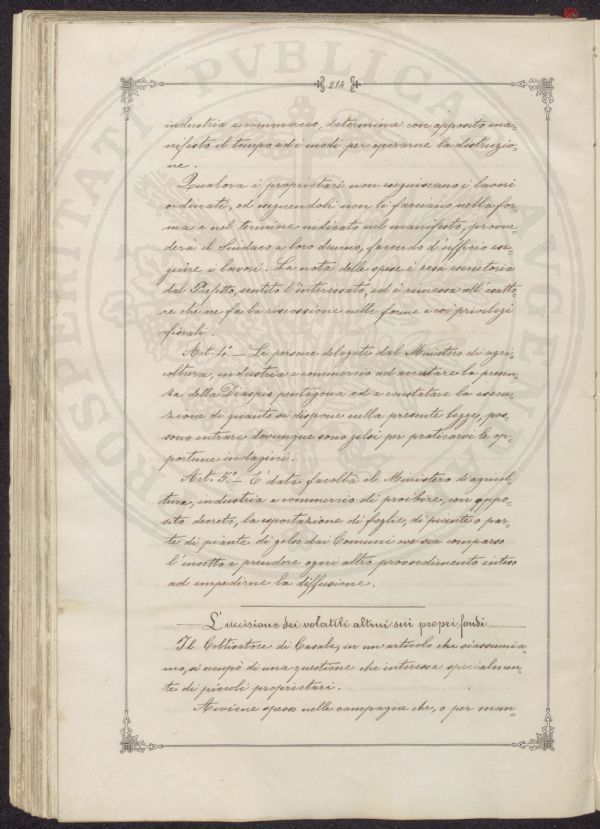 214
industria e commercio, determina con apposito ma-
nifesto il tempo ed i modi per operarne la distruzio-
ne.
Qualora i proprietari non eseguiscano i lavori
ordinati, od eseguendoli non li facciano nella for-
ma e nel termine indicato nel manifesto, provve-
derà il Sindaco a loro danno, facendo d'ufficio ese-
guire i lavori. La nota delle spese è resa esecutoria
dal Prefetto, sentito l'interessato, ed è rimessa all'esatto-
re che ne fa la riscossione nelle forme e coi privilegi
fiscali.
Art. 4.° — Le persone delegate dal Ministero di agri-
coltura, industria e commercio ad accertare la presen-
za della Diaspis pentagona ed a constatare la esecu-
zione di quanto si dispone nella presente legge, pos-
sono entrare dovunque sono gelsi per praticarvi le op-
portune indagini.
Art. 5.° — È data facoltà al Ministero di agricol-
tura, industria e commercio di proibire, con appo-
sito decreto, la esportazione di foglie, di piante o par-
te di piante di gelso dai Comuni ove sia comparso
l'insetto e prendere ogni altro provvedimento inteso
ad impedirne la diffusione.
— L'uccisione dei volatili altrui sui propri fondi —
Il Coltivatore di Casale, in un articolo che riassumia-
mo, si occupò di una questione che interessa specialmen-
te di piccoli proprietari.
Avviene spesso nelle campagne che, o per man-
PVBLICAE
AVGENDAE
PROSPERITATI